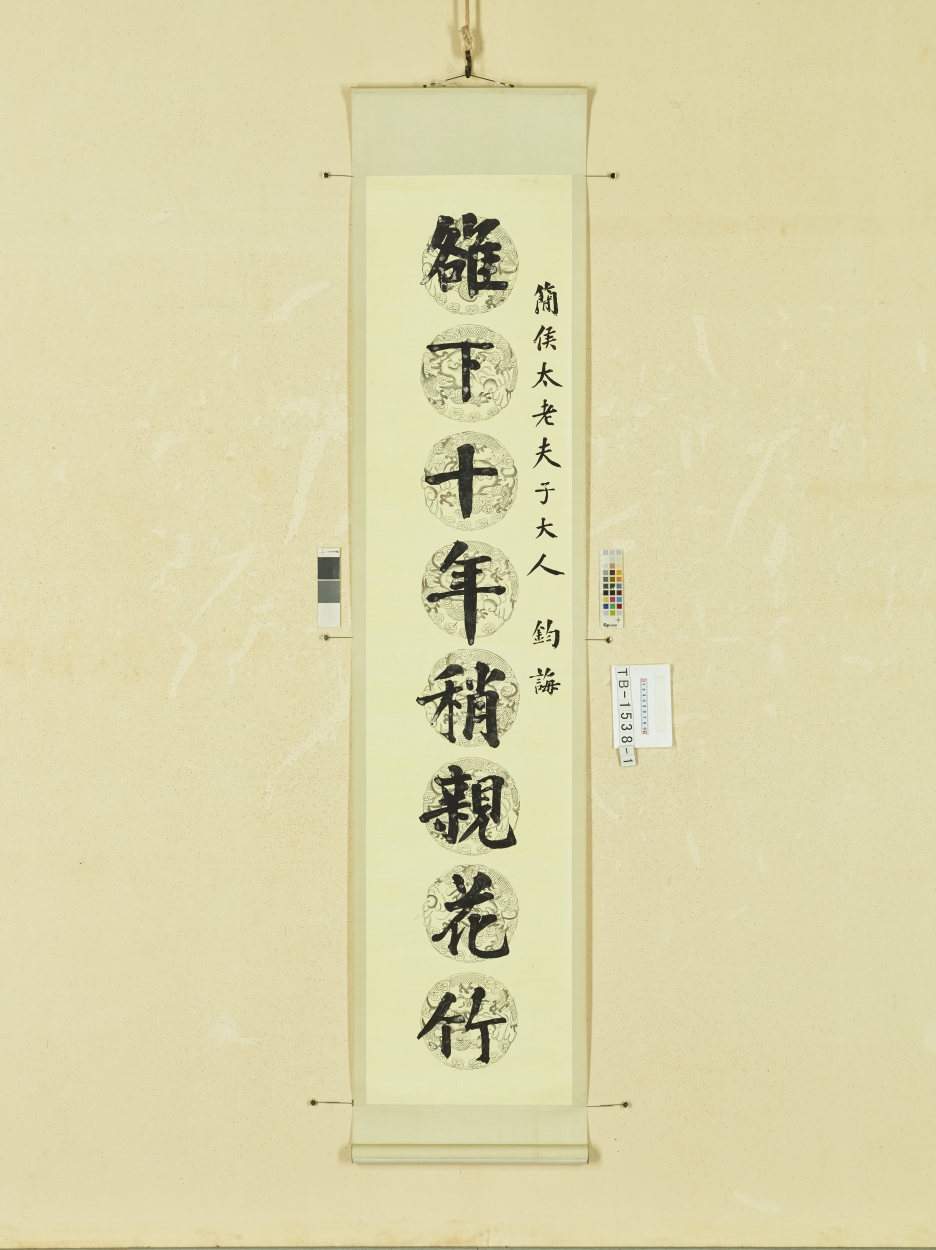 簡侯太老夫子大人 鈞誨
雒下十年稍親花竹
TB-1538-1